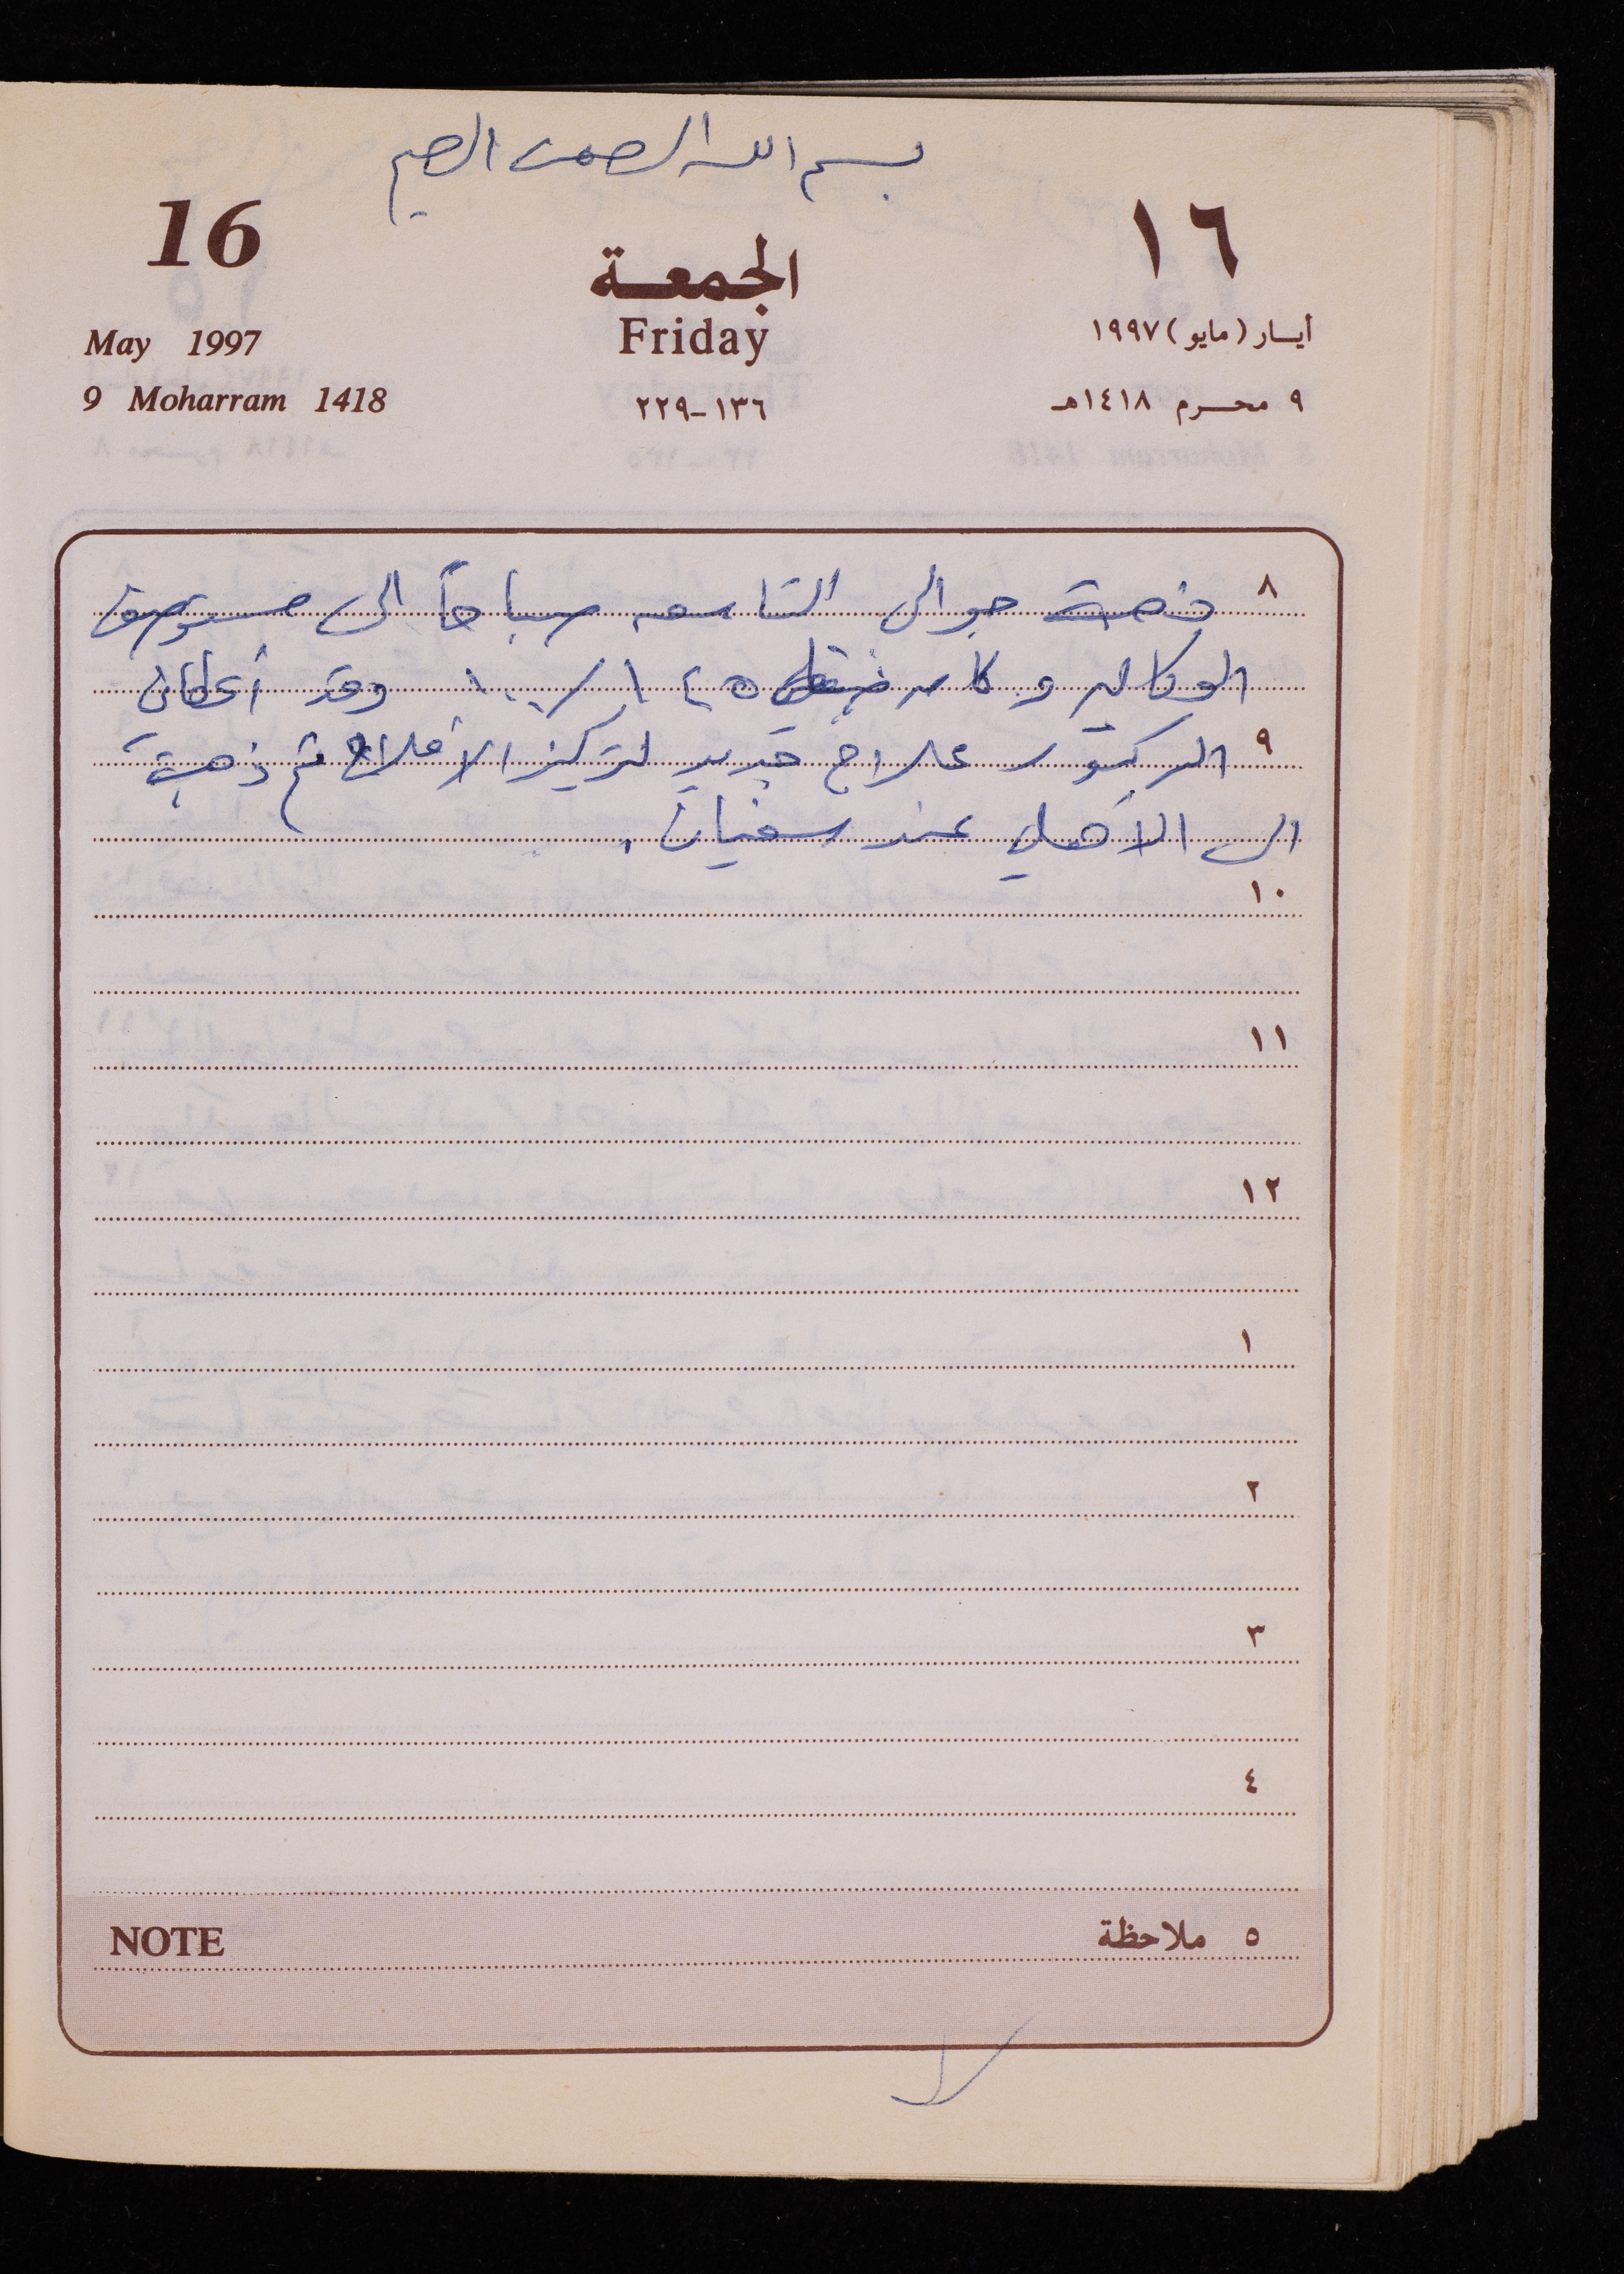 بسم الله الرحمن الرحيم
16
١٦
الجمعة
Friday
May 1997
أيـار (مايو) ١٩٩٧
9 Moharram 1418
١٣٦-٢٢٩
٩ محـرم ١٤١٨هـ
٨ ذهبة حوالي التاسعه صباحاً الى مستوصف
الوكاله وكان ضغطي ١٤٥/١٠٠ وقد أعطاني
٩ الدكتور علاج جديد لتركيز الأملاح ثم ذهبة
الى الأهلي عند سفيان .
١٠
١١
١٢
١
٢
٣
٤
NOTE
٥ ملاحظة
لا